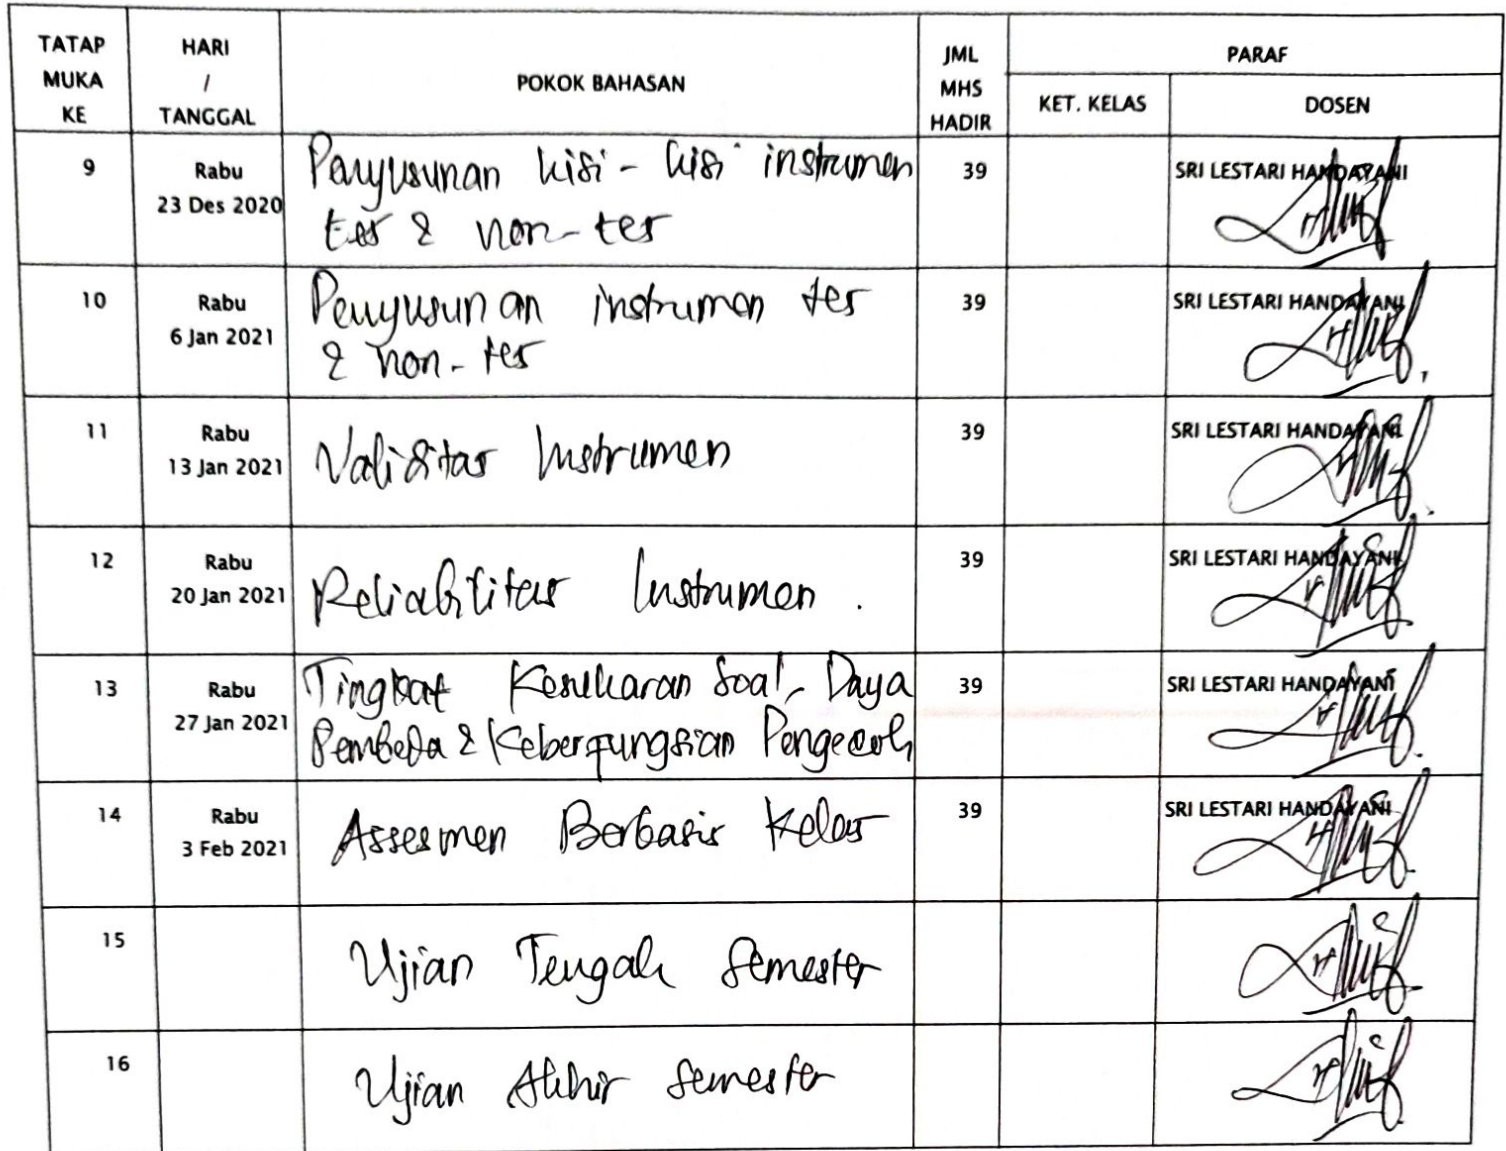 TATAP MUKA KE
HARI / TANGGAL
POKOK BAHASAN
JML MHS HADIR
PARAF
KET. KELAS
DOSEN
9
Rabu
23 Des 2020
Penyusunan kisi-kisi instrumen
tes & non-tes
39
SRI LESTARI HANDAYANI
10
Rabu
6 Jan 2021
Penyusunan instrumen tes
& non-tes
39
SRI LESTARI HANDAYANI
11
Rabu
13 Jan 2021
Validitas Instrumen
39
SRI LESTARI HANDAYANI
12
Rabu
20 Jan 2021
Reliabilitas Instrumen .
39
SRI LESTARI HANDAYANI
13
Rabu
27 Jan 2021
Tingkat Kesukaran Soal, Daya
Pembeda & Keberfungsian Pengecoh
39
SRI LESTARI HANDAYANI
14
Rabu
3 Feb 2021
Assesmen Berbasis Kelas
39
SRI LESTARI HANDAYANI
15
Ujian Tengah Semester
16
Ujian Akhir Semester